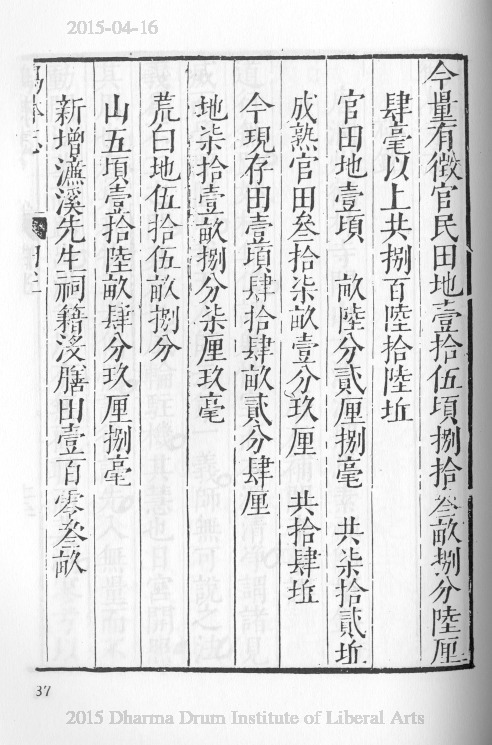 2015-04-16
今量有徵官民田地壹拾伍頃捌拾叁畝捌分陸厘
肆毫以上共捌百陸拾陸坵
官田地壹頃 畝陸分貳厘捌毫 共柒拾貳坵
成熟官田叁拾柒畝壹分玖厘 共拾肆坵
今現存田壹頃肆拾肆畝貳分肆厘
地柒拾壹畝捌分柒厘玖毫
荒白地伍拾伍畝捌分
山五頃壹拾陸畝肆分玖厘捌毫
新增濂溪先生祠籍没膳田壹百零叁畝
37
2015 Dharma Drum Institute of Liberal Arts